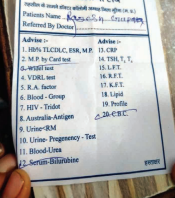 Patients Name
Referred by Doctor
Advise :-
1. Hb% TLCDLC, ESR, M.P.
2. M.P. by Card test
3. Widal test
4. VDRL test
5. R.A. factor
6. Blood - Group
7. HIV - Tridot
8. Australia-Antigen
9. Urine-RM
10. Urine- Pregenency - Test
11. Blood-Urea
12. Serum-Bilurubine
Advise :-
13. CRP
14. TSH, T, T,
15. L.F.T.
16. R.F.T.
17. K.F.T.
18. Lipid
19. Profile
20. CBC
हस्ताक्षर